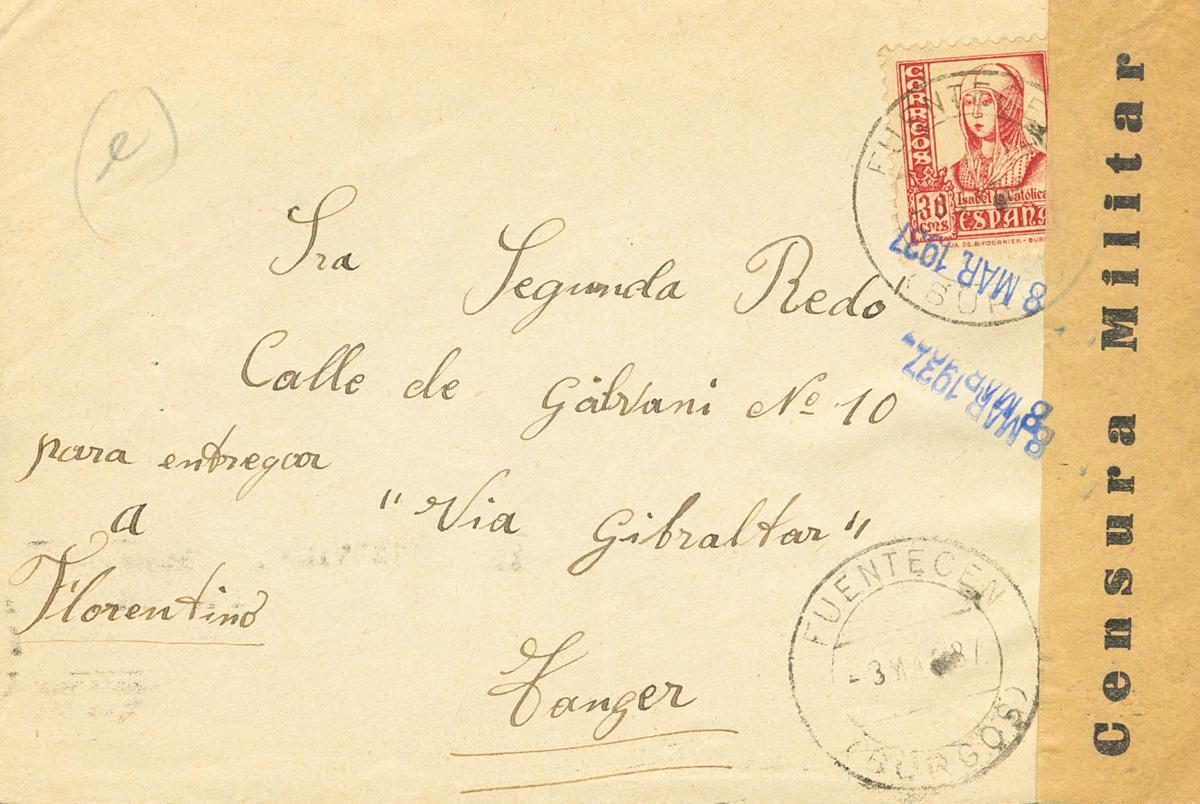 (e)
CORREOS
Isabel la Católica
30 cms
ESPAÑA
FUENTECEN
(BURGOS)
8 MAR 1937
8 MAR 1937
Sra Segunda Redo
Calle de Galvani Nº 10
para entregar
a
Florentino
"Via Gibraltar"
Tanger
FUENTECEN
-3 MAR 37
(BURGOS)
Censura Militar